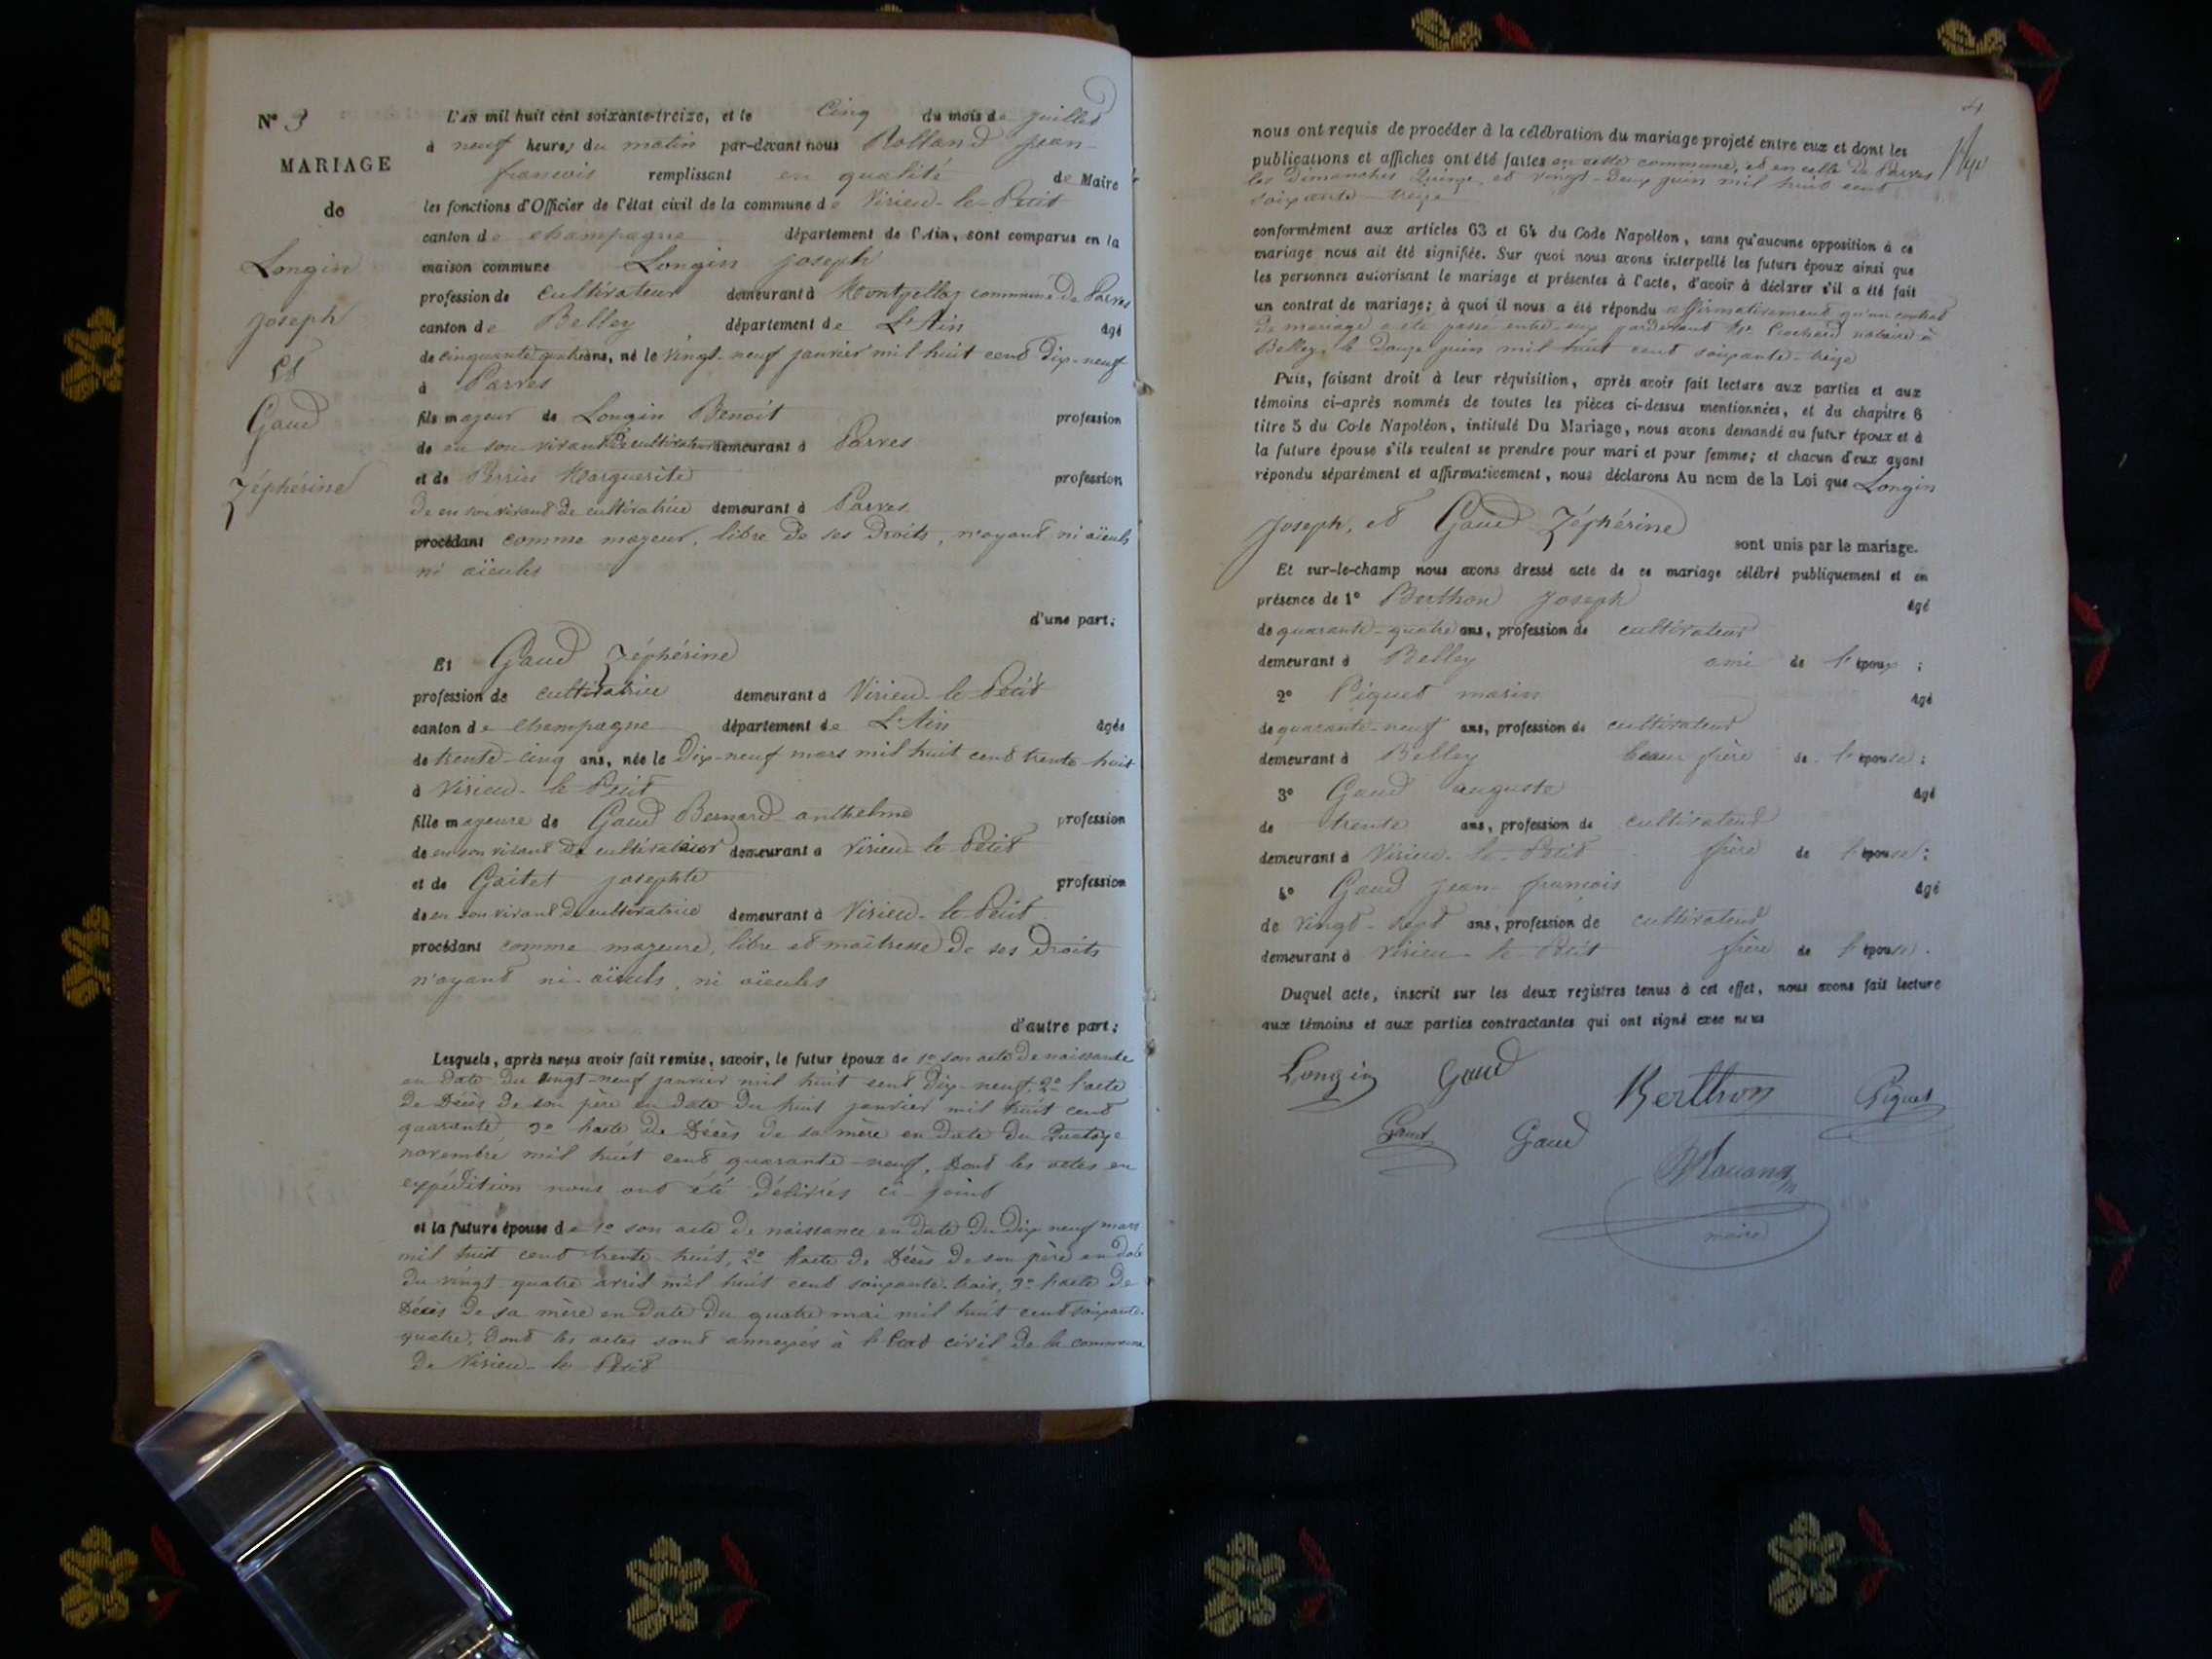 N° 3
MARIAGE
de
Longin
Joseph
Et
Gaud
Zéphérine
L'an mil huit cent soixante-treize, et le Cinq du mois de juillet
à neuf heures du matin par-devant nous Rolland jean-
francois remplissant en qualité de Maire
les fonctions d'Officier de l'état civil de la commune de Virieu-le-Petit
canton de champagne département de l'Ain, sont comparus en la
maison commune Longin joseph
profession de Cultivateur demeurant à commune de Parves
canton de Belley département de L'Ain âgé
de cinquante quatre ans, né le vingt-neuf janvier mil huit cent dix-neuf
à Parves
fils majeur de Longin Benoit profession
de en son vivant de cultivateur demeurant à Parves
et de Perrin Marguerite profession
de en son vivant de cultivatrice demeurant à Parves
procédant comme majeur, libre de ses Droits, n'ayant ni aïeuls
ni aïeules
d'une part;
Et Gaud Zéphérine
profession de cultivatrice demeurant à Virieu-le-Petit
canton de champagne département de L'Ain âgée
de trente-cinq ans, née le Dix-neuf mars mil huit cent trente-huit
à Virieu-le-Petit
fille majeure de Gaud Bernard anthelme profession
de en son vivant de cultivateur demeurant à Virieu-le-Petit
et de Gaitet josephte profession
de en son vivant de cultivatrice demeurant à Virieu-le-Petit
procédant comme majeure, libre et maîtresse de ses Droits
n'ayant ni aïeuls, ni aïeules
d'autre part;
Lesquels, après nous avoir fait remise, savoir, le futur époux de 1° son acte de naissance
en date du vingt-neuf janvier mil huit cent dix-neuf, 2° l'acte
de Décès de son père en date du huit janvier mil huit cent
quarante, 3° l'acte de Décès de sa mère en date du Quatorze
novembre mil huit cent quarante-neuf, Dont les actes en
expédition nous ont été délivrés ci-joint
et la future épouse de 1° son acte de naissance en date du Dix neuf mars
mil huit cent trente-huit, 2° l'acte de Décès de son père en date
du vingt quatre avril mil huit cent soixante-trois, 3° l'acte de
Décès de sa mère en date du quatre mai mil huit cent soixante-
quatre, Dont les actes sont annexés à l'Etat civil de la commune
de Virieu-le-Petit
4
nous ont requis de procéder à la célébration du mariage projeté entre eux et dont les
publications et affiches ont été faites en cette commune, et en celle de Parves
les Dimanches Quinze, et vingt-Deux juin mil huit cent
soixante-treize
conformément aux articles 63 et 64 du Code Napoléon, sans qu'aucune opposition à ce
mariage nous ait été signifiée. Sur quoi nous avons interpellé les futurs époux ainsi que
les personnes autorisant le mariage et présentes à l'acte, d'avoir à déclarer s'il a été fait
un contrat de mariage; à quoi il nous a été répondu affirmativement qu'un contrat
de mariage a été passé entre eux pardevant Me notaire à
Belley, le Douze juin mil huit cent soixante-treize
Puis, faisant droit à leur réquisition, après avoir fait lecture aux parties et aux
témoins ci-après nommés de toutes les pièces ci-dessus mentionnées, et du chapitre 6
titre 5 du Code Napoléon, intitulé Du Mariage, nous avons demandé au futur époux et à
la future épouse s'ils veulent se prendre pour mari et pour femme; et chacun d'eux ayant
répondu séparément et affirmativement, nous déclarons Au nom de la Loi que Longin
Joseph, et Gaud Zéphérine
sont unis par le mariage.
Et sur-le-champ nous avons dressé acte de ce mariage célébré publiquement et en
présence de 1° Berthon Joseph âgé
de quarante-quatre ans, profession de cultivateur
demeurant à Belley ami de l'époux;
2° Piquet marin âgé
de quarante-neuf ans, profession de cultivateur
demeurant à Belley beau frère de l'épouse;
3° Gaud auguste âgé
de trente ans, profession de cultivateur
demeurant à Virieu-le-Petit frère de l'épouse;
4° Gaud jean françois âgé
de vingt-sept ans, profession de cultivateur
demeurant à Virieu-le-Petit frère de l'épouse.
Duquel acte, inscrit sur les deux registres tenus à cet effet, nous avons fait lecture
aux témoins et aux parties contractantes qui ont signé avec nous
Longin Gaud Berthon Piquet
Gaud Gaud
maire